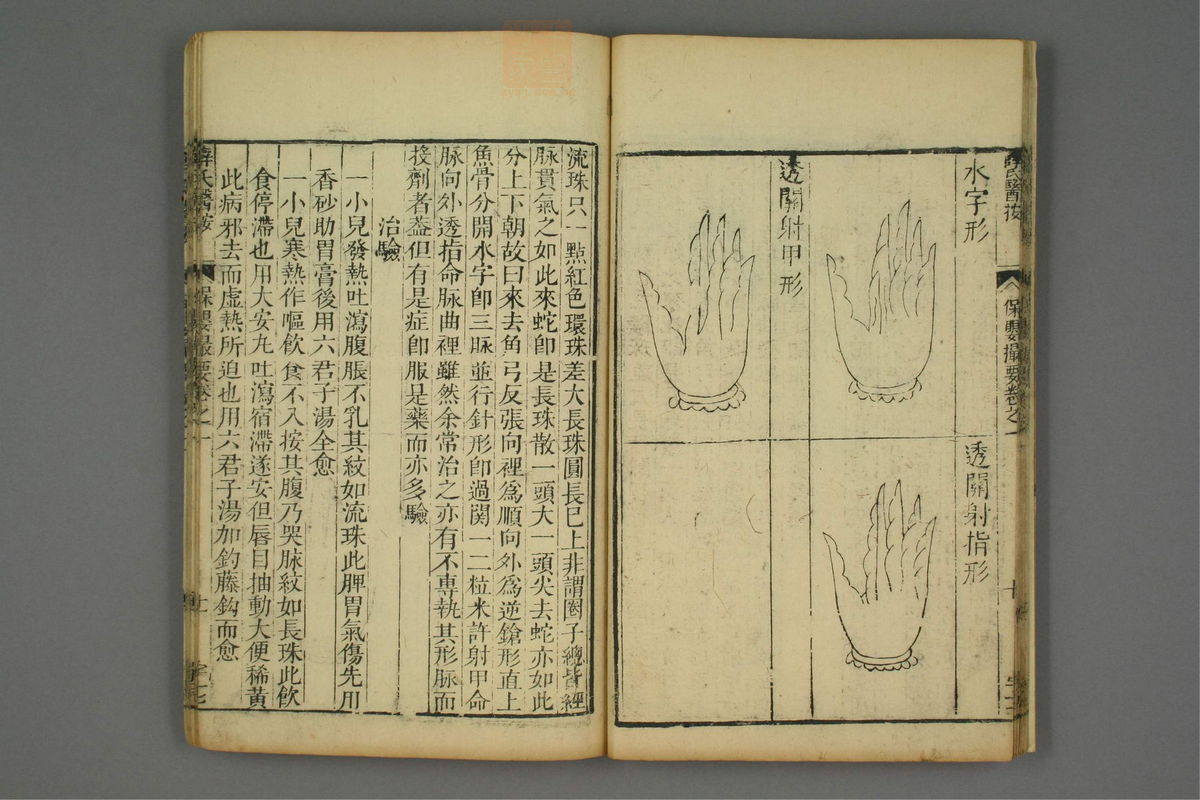 水字形
透關射指形
透關射甲形
保嬰撮要卷之一
流珠只一點紅色環珠差大長珠圓長已上非謂圈子總皆經
脉貫氣之如此來蛇卽是長珠散一頭大一頭尖去蛇亦如此
分上下朝故曰來去角弓反張向裡爲順向外爲逆鎗形直上
魚骨分開水字卽三脉並行針形卽過関一二粒米許射甲命
脉向外透指命脉曲裡雖然余常治之亦有不專執其形脉而
投劑者葢但有是症卽服是藥而亦多驗
治驗
一小兒發熱吐瀉腹脹不乳其紋如流珠此脾胃氣傷先用
香砂助胃膏後用六君子湯全愈
一小兒寒熱作嘔飲食不入按其腹乃哭脉紋如長珠此飲
食停滯也用大安丸吐瀉宿滯遂安但唇目抽動大便稀黃
此病邪去而虛熱所迫也用六君子湯加鈎藤鈎而愈
薛氏醫按
保嬰撮要卷之一